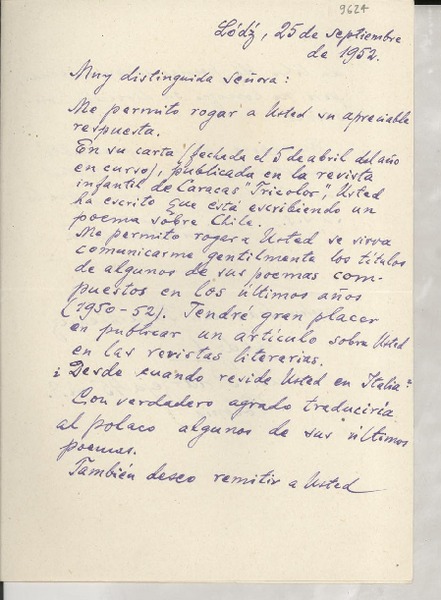 9624
Łódź, 25 de septiembre
de 1952.
Muy distinguida señora:
Me permito rogar a Usted su apreciable
respuesta.
En su carta (fechada el 5 de abril del año
en curso), publicada en la revista
infantil de Caracas "Tricolor", Usted
ha escrito que está escribiendo un
poema sobre Chile.
Me permito rogar a Usted se sirva
comunicarme gentilmente los títulos
de algunos de sus poemas com-
puestos en los últimos años
(1950-52). Tendré gran placer
en publicar un artículo sobre Usted
en las revistas literarias.
¿Desde cuando reside Usted en Italia?
Con verdadero agrado traduciría
al polaco algunos de sus últimos
poemas.
También deseo remitir a Usted